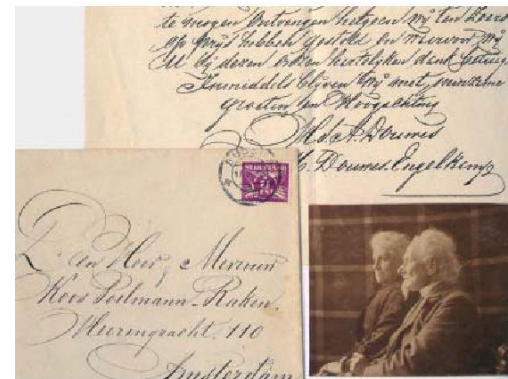 te mogen ontvangen hetgeen wij ten zeerste
op prijs hebben gesteld en waarvoor wij
U bij dezen onzen hartelijken dank betuigen
Inmiddels blijven wij met minzame
groeten en Hoogachting
H. A. Douwes
Douwes-Engelkemp
NEDERLAND
Den Heer, Mevrouw
Koos Peilmann-Raken.
Heerengracht 110
Amsterdam